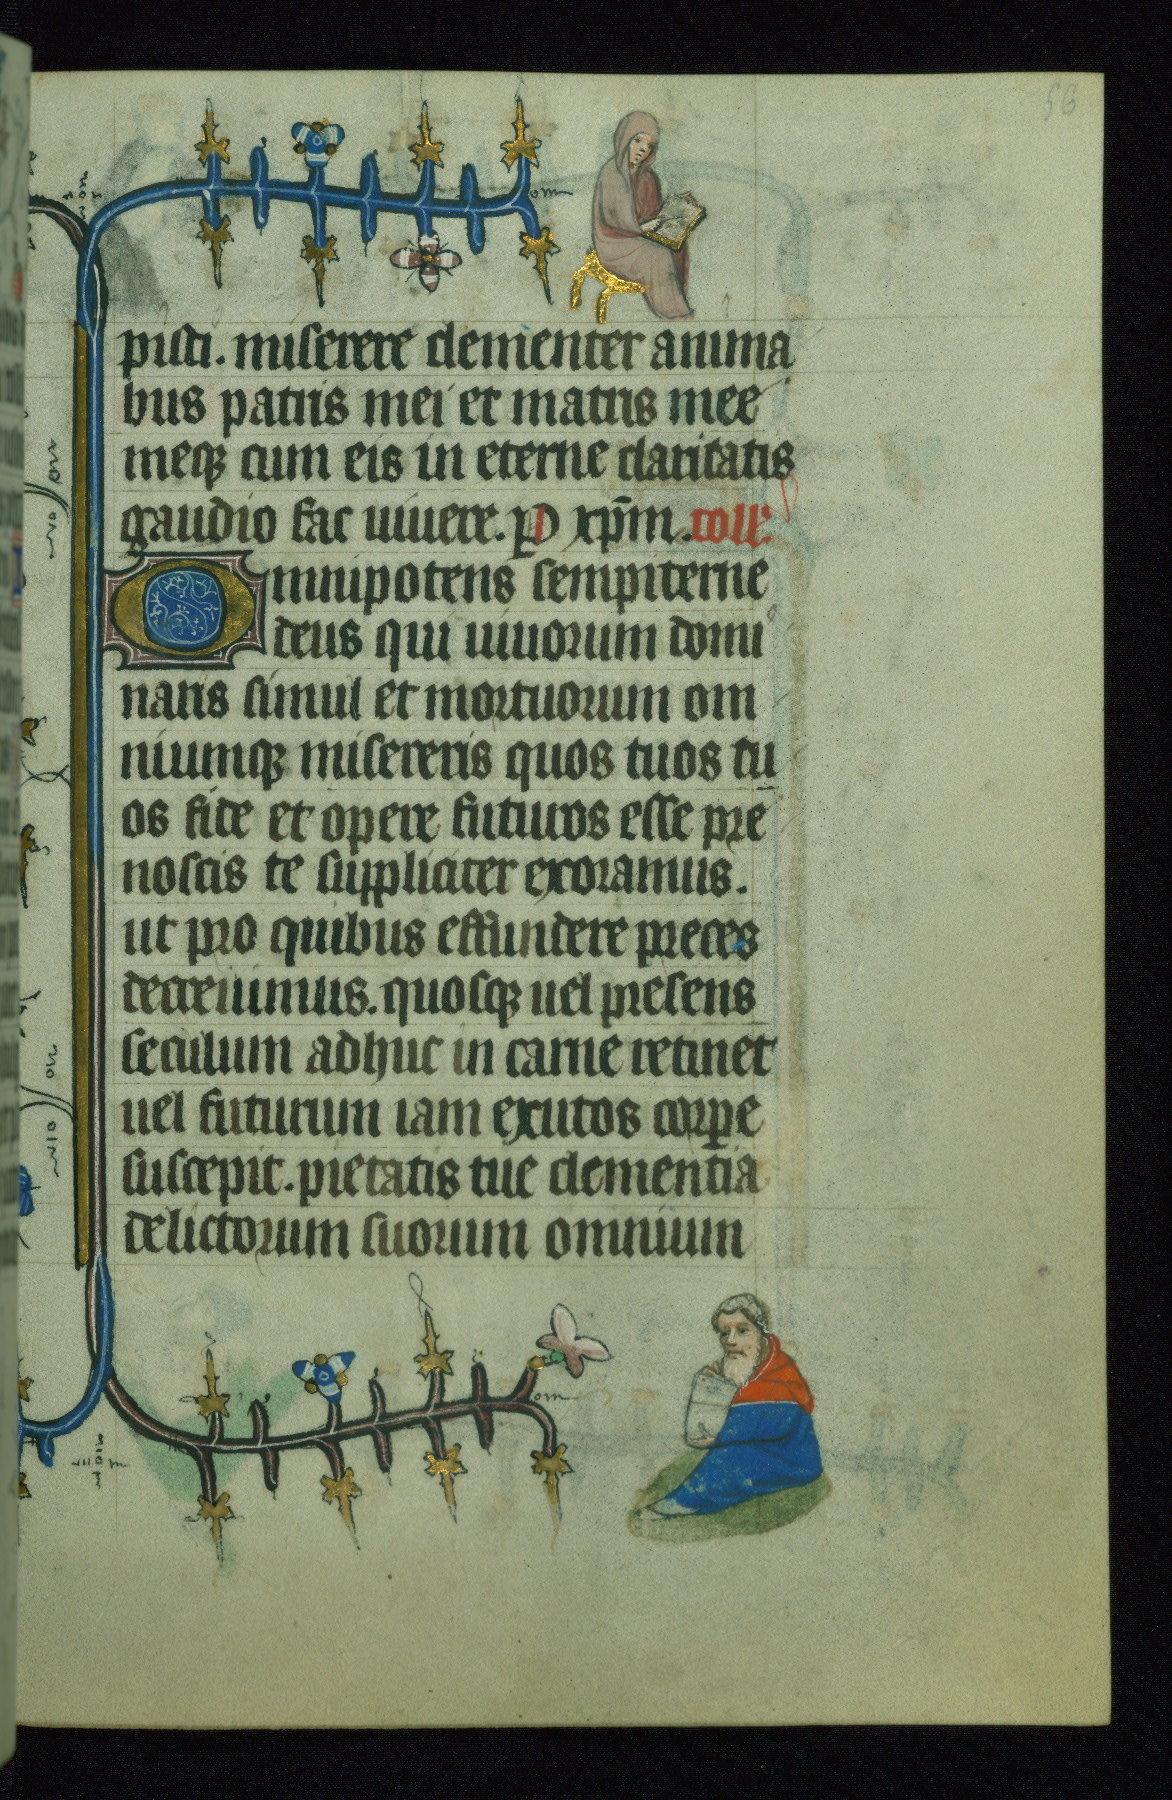 56
pisti. miserere clementer anima
bus patris mei et matris mee
meqꝫ cum eis in eterne claritatis
gaudio fac uiuere. ꝑ xp̄m. coll'.
Omnipotens sempiterne
deus qui uiuorum domi
naris simul et mortuorum om
niumqꝫ misereris quos tuos tu
os fide et opere futuros esse pre
noscis te suppliciter exoramus.
ut pro quibus effundere preces
decreuimus. quosqꝫ uel presens
seculum adhuc in carne retinet
uel futurum iam exutos corꝑe
suscepit. pietatis tue clementia
delictorum suorum omnium